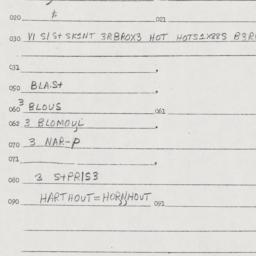 020 021
030 VI SIS+ SKINT 3RBROX3 HOT
031
050 BLA.S+
060 3 BLOUS 061
062 3 BLOMOYL
070 3 NAR-P
071
080 3 S+PRIS3
090 HARTHOUT=HORNHOUT 091